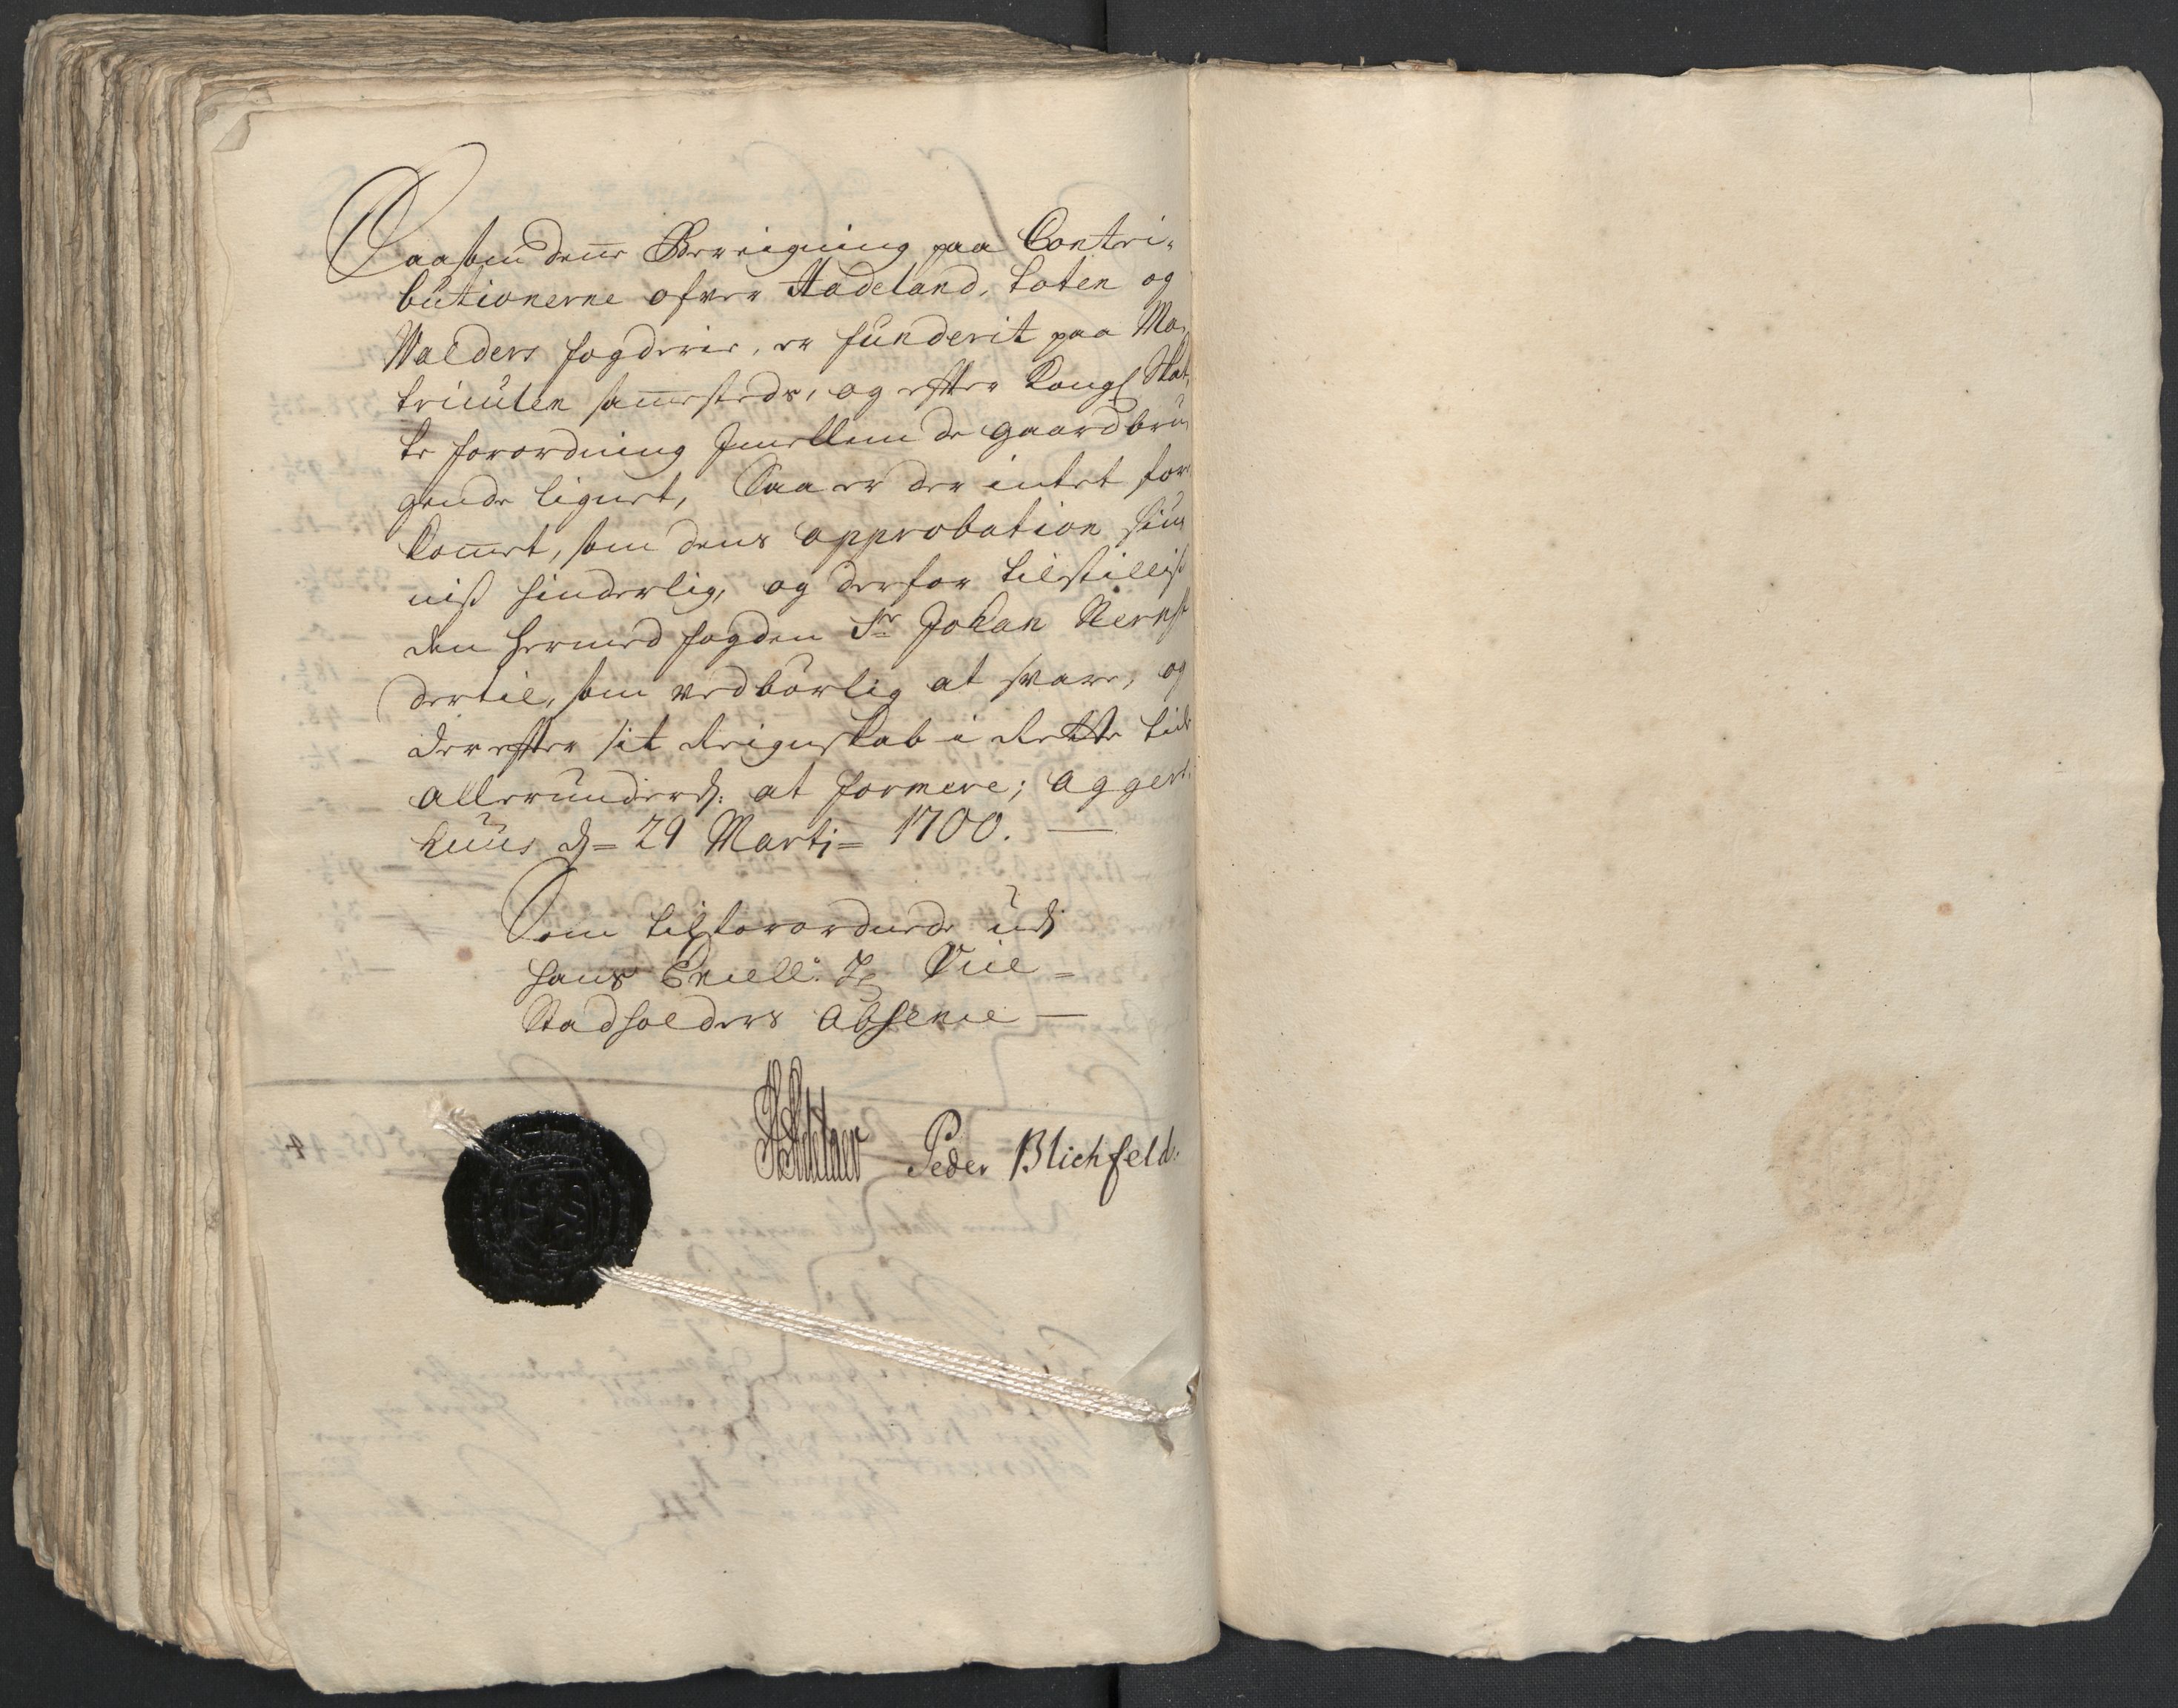 Saasom denne Bereigning paa Contri-
butionerne ofver Hadeland, Toten og
Walders fogderie, er funderit paa Ma-
triculen sammesteds, og efter Kongl Skat-
te forordning Jmellem de gaardbru-
gende lignet, Saa er der intet for-
kommet, som dens approbation
hinderlig, og derfor tilstillis
den hermed fogden Sr Johan
dertil, som vedbørlig at svare, og
derefter sit Reigenskab i Rette tide
allerunderd: at formere; Agger-
huus d= 29 Martj= 1700. —
Som tilforordnede udj
hans Excell: Hr Vice=
Stadholders Absence —
Peder Blichfeld.